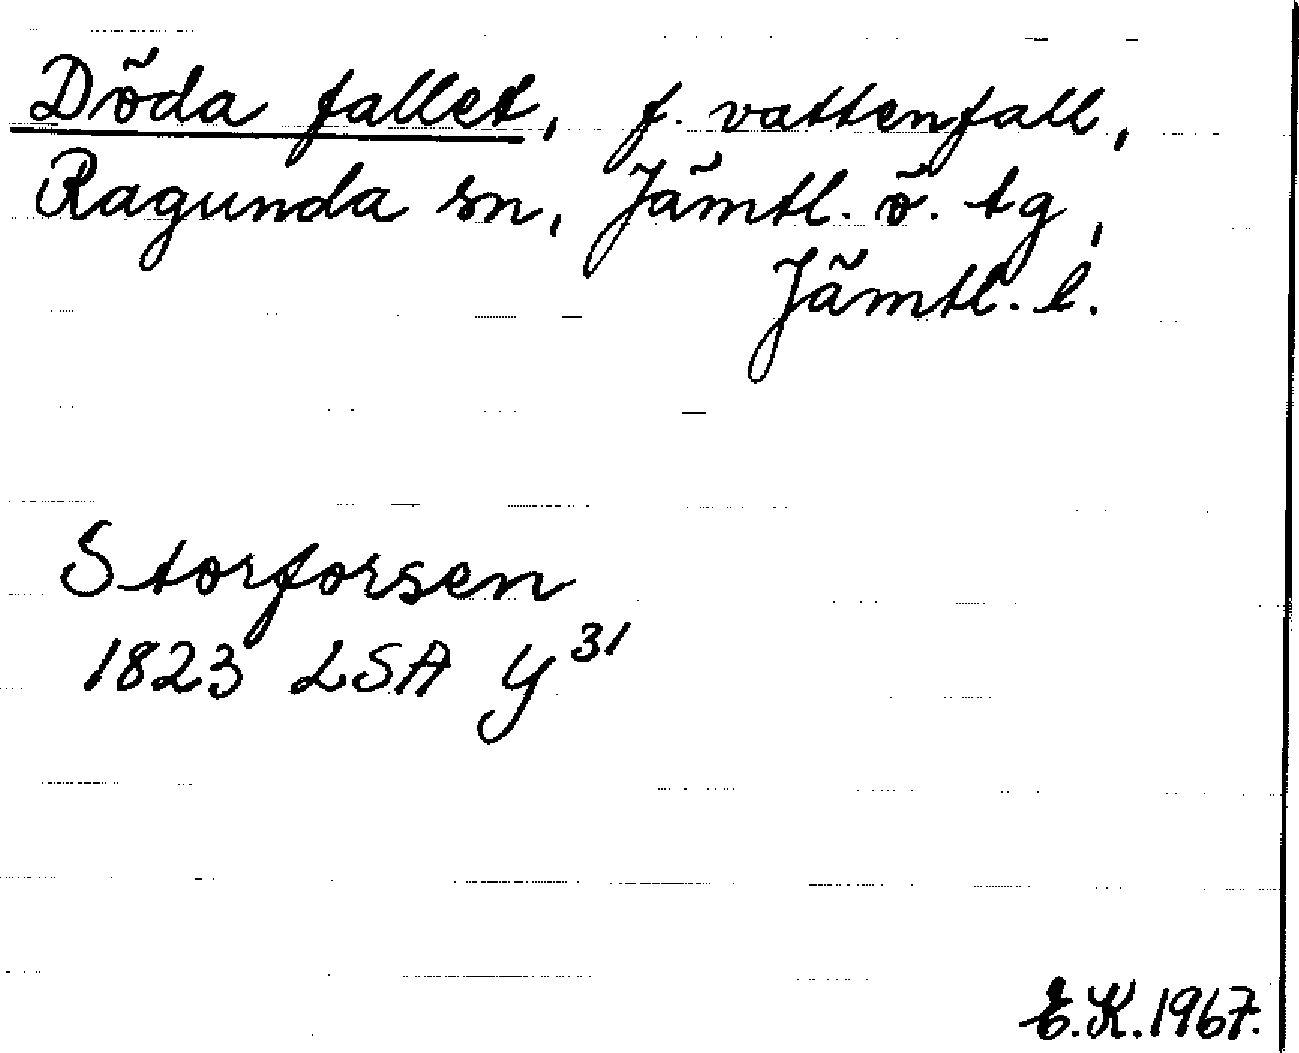 Döda fallet, f. vattenfall,
Ragunda sn, Jämtl. ö. tg,
Jämtl. l.
Storforsen
1823 LSA Y³¹
E.K. 1967.